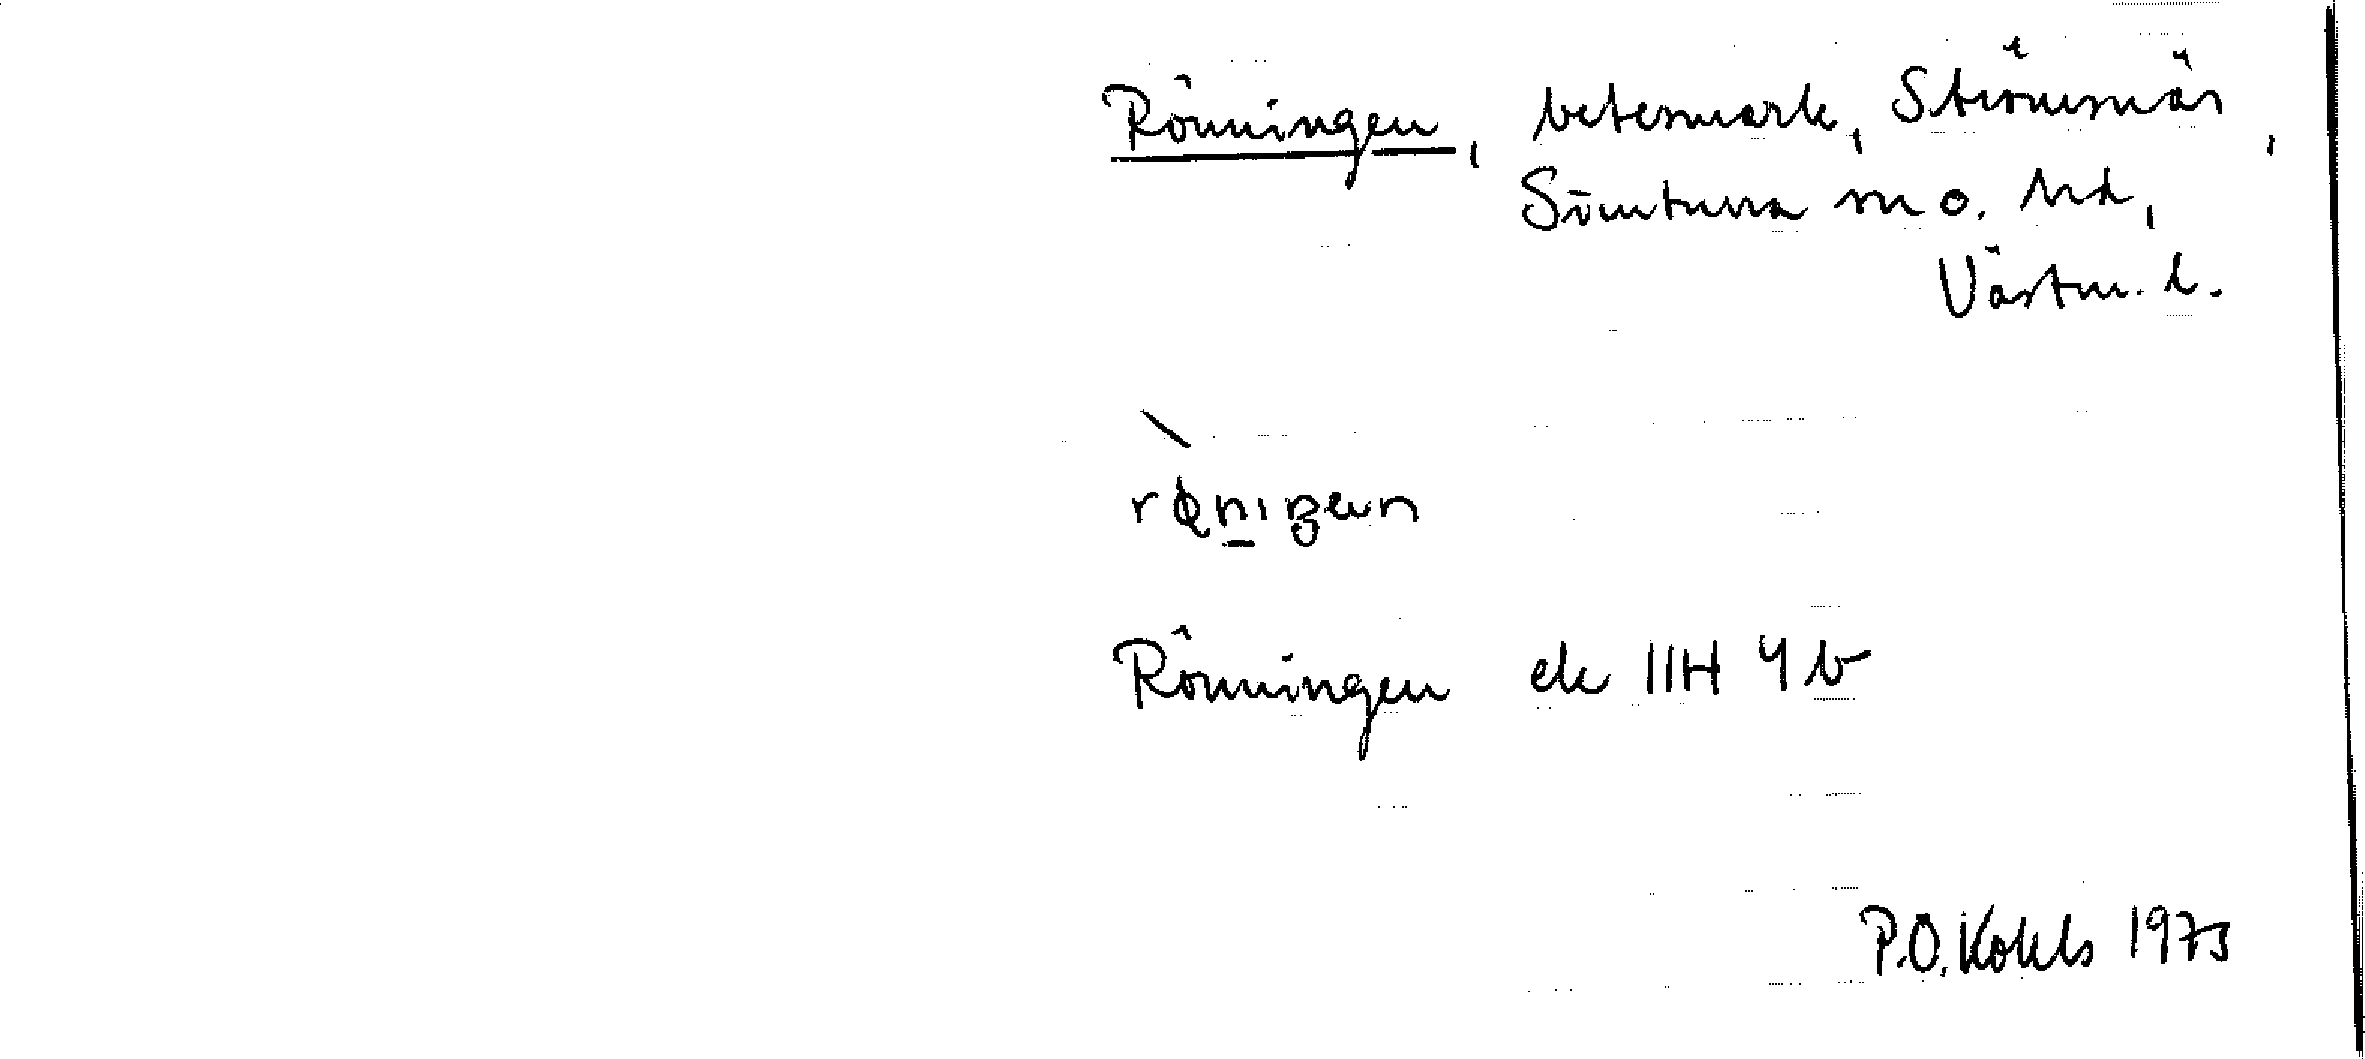 Rönningen, betesmark, Strömsnäs,
Simtuna sn o. hd,
Västm. l.
Rönningen ek 11H 4b
P.O. Kohls 1973